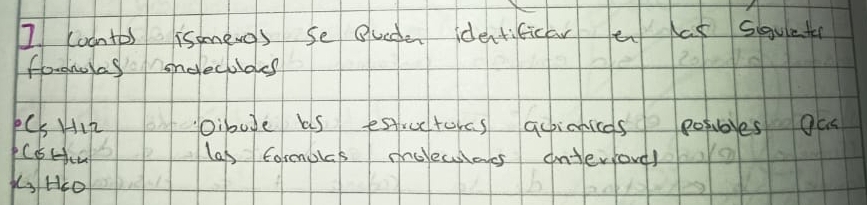 I Cuantos isomeros se Pueden identificar en las siguientes
formulas moleculares
• C5 H12 Dibuje las estructuras quimicas posibles para
• C6 H14 las formulas moleculares anteriores
• C3 H6O